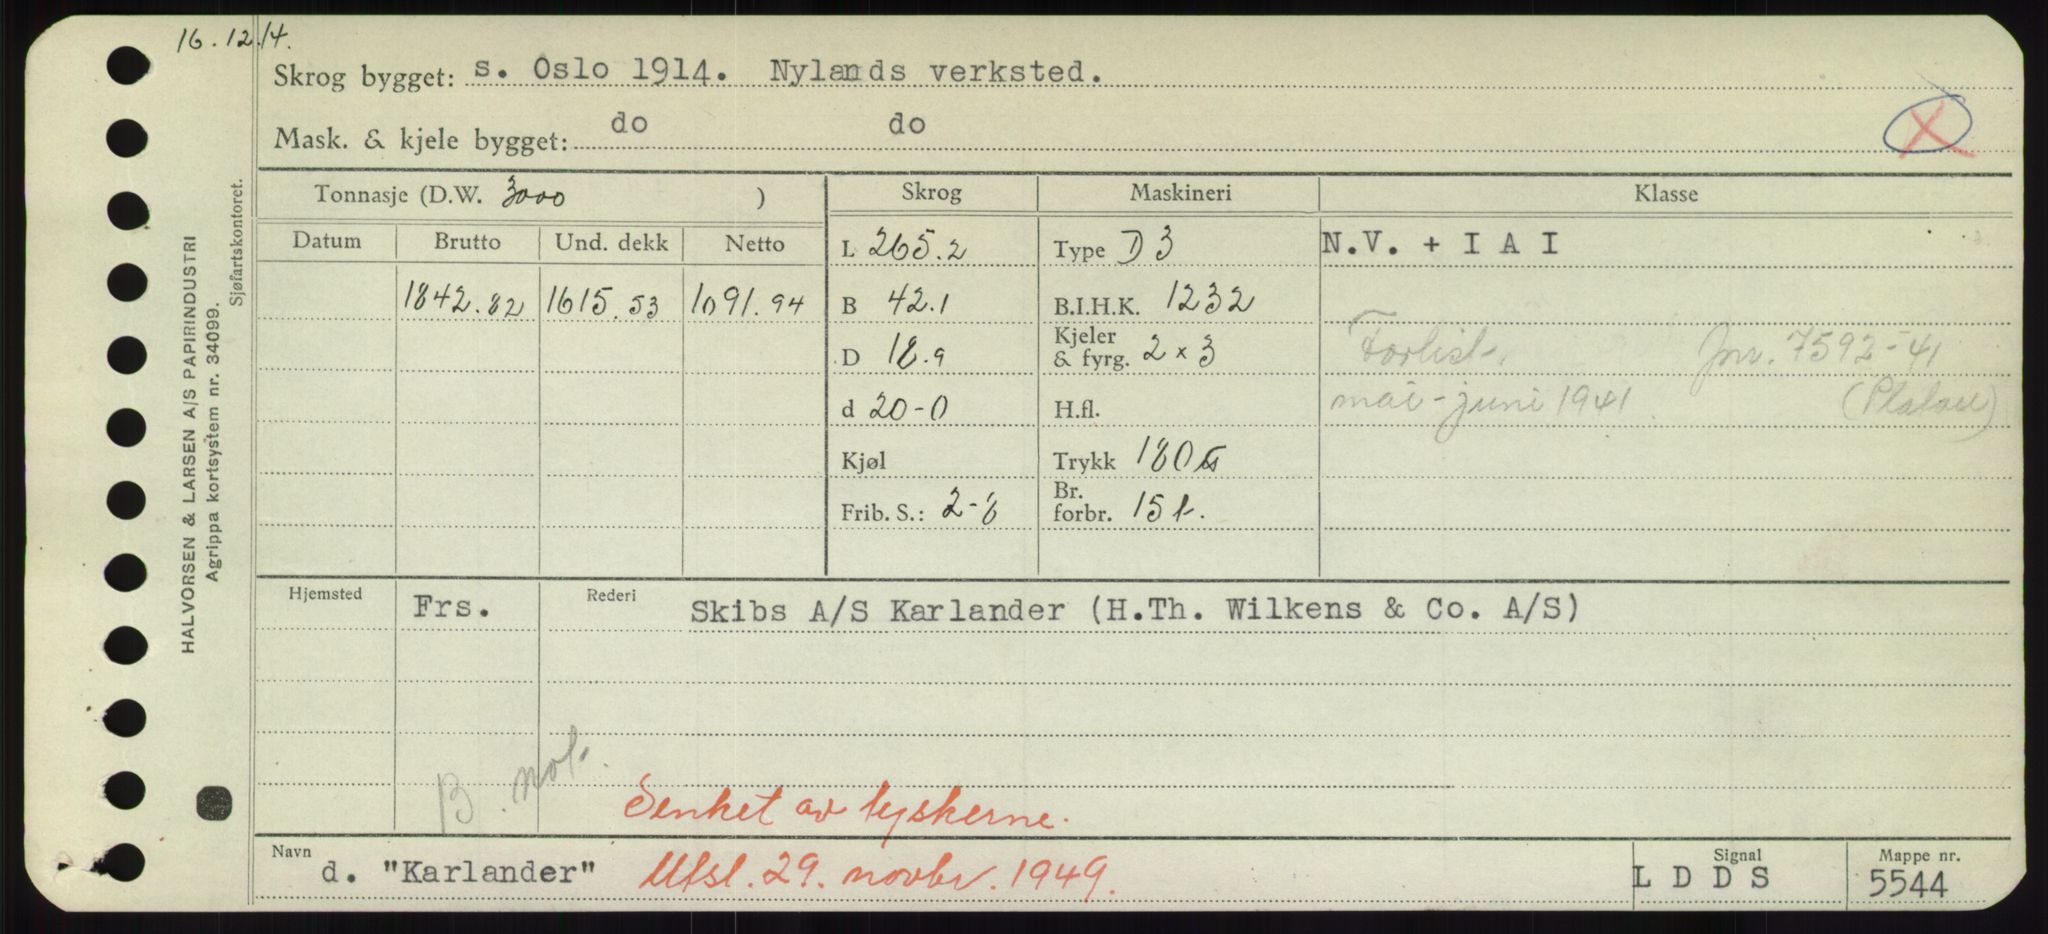 16.12.14.
Skrog bygget: s. Oslo 1914. Nylands verksted.
Mask. & kjele bygget: do do
HALVORSEN & LARSEN A/S PAPIRINDUSTRI
Agrippa kortsystem nr. 34099.
Sjøfartskontoret.
Tonnasje (D.W. 3000 ) Skrog Maskineri Klasse
Datum Brutto Und. dekk Netto L 265.2 Type D 3 N.V. + I A I
1842.82 1615.53 1091.94 B 42.1 B.I.H.K. 1232
D 18.9 Kjeler & fyrg. 2 x 3 Forlist Jnr. 7592-41
d 20-0 H.fl. mai - juni 1941
Kjøl Trykk 180
Frib. S.: 2-8 Br. forbr. 15 t.
Hjemsted Frs. Rederi Skibs A/S Karlander (H.Th. Wilkens & Co. A/S)
B. not.
Senket av tyskerne.
Navn d. "Karlander" Utsl. 29. novbr. 1949. Signal L D D S Mappe nr. 5544